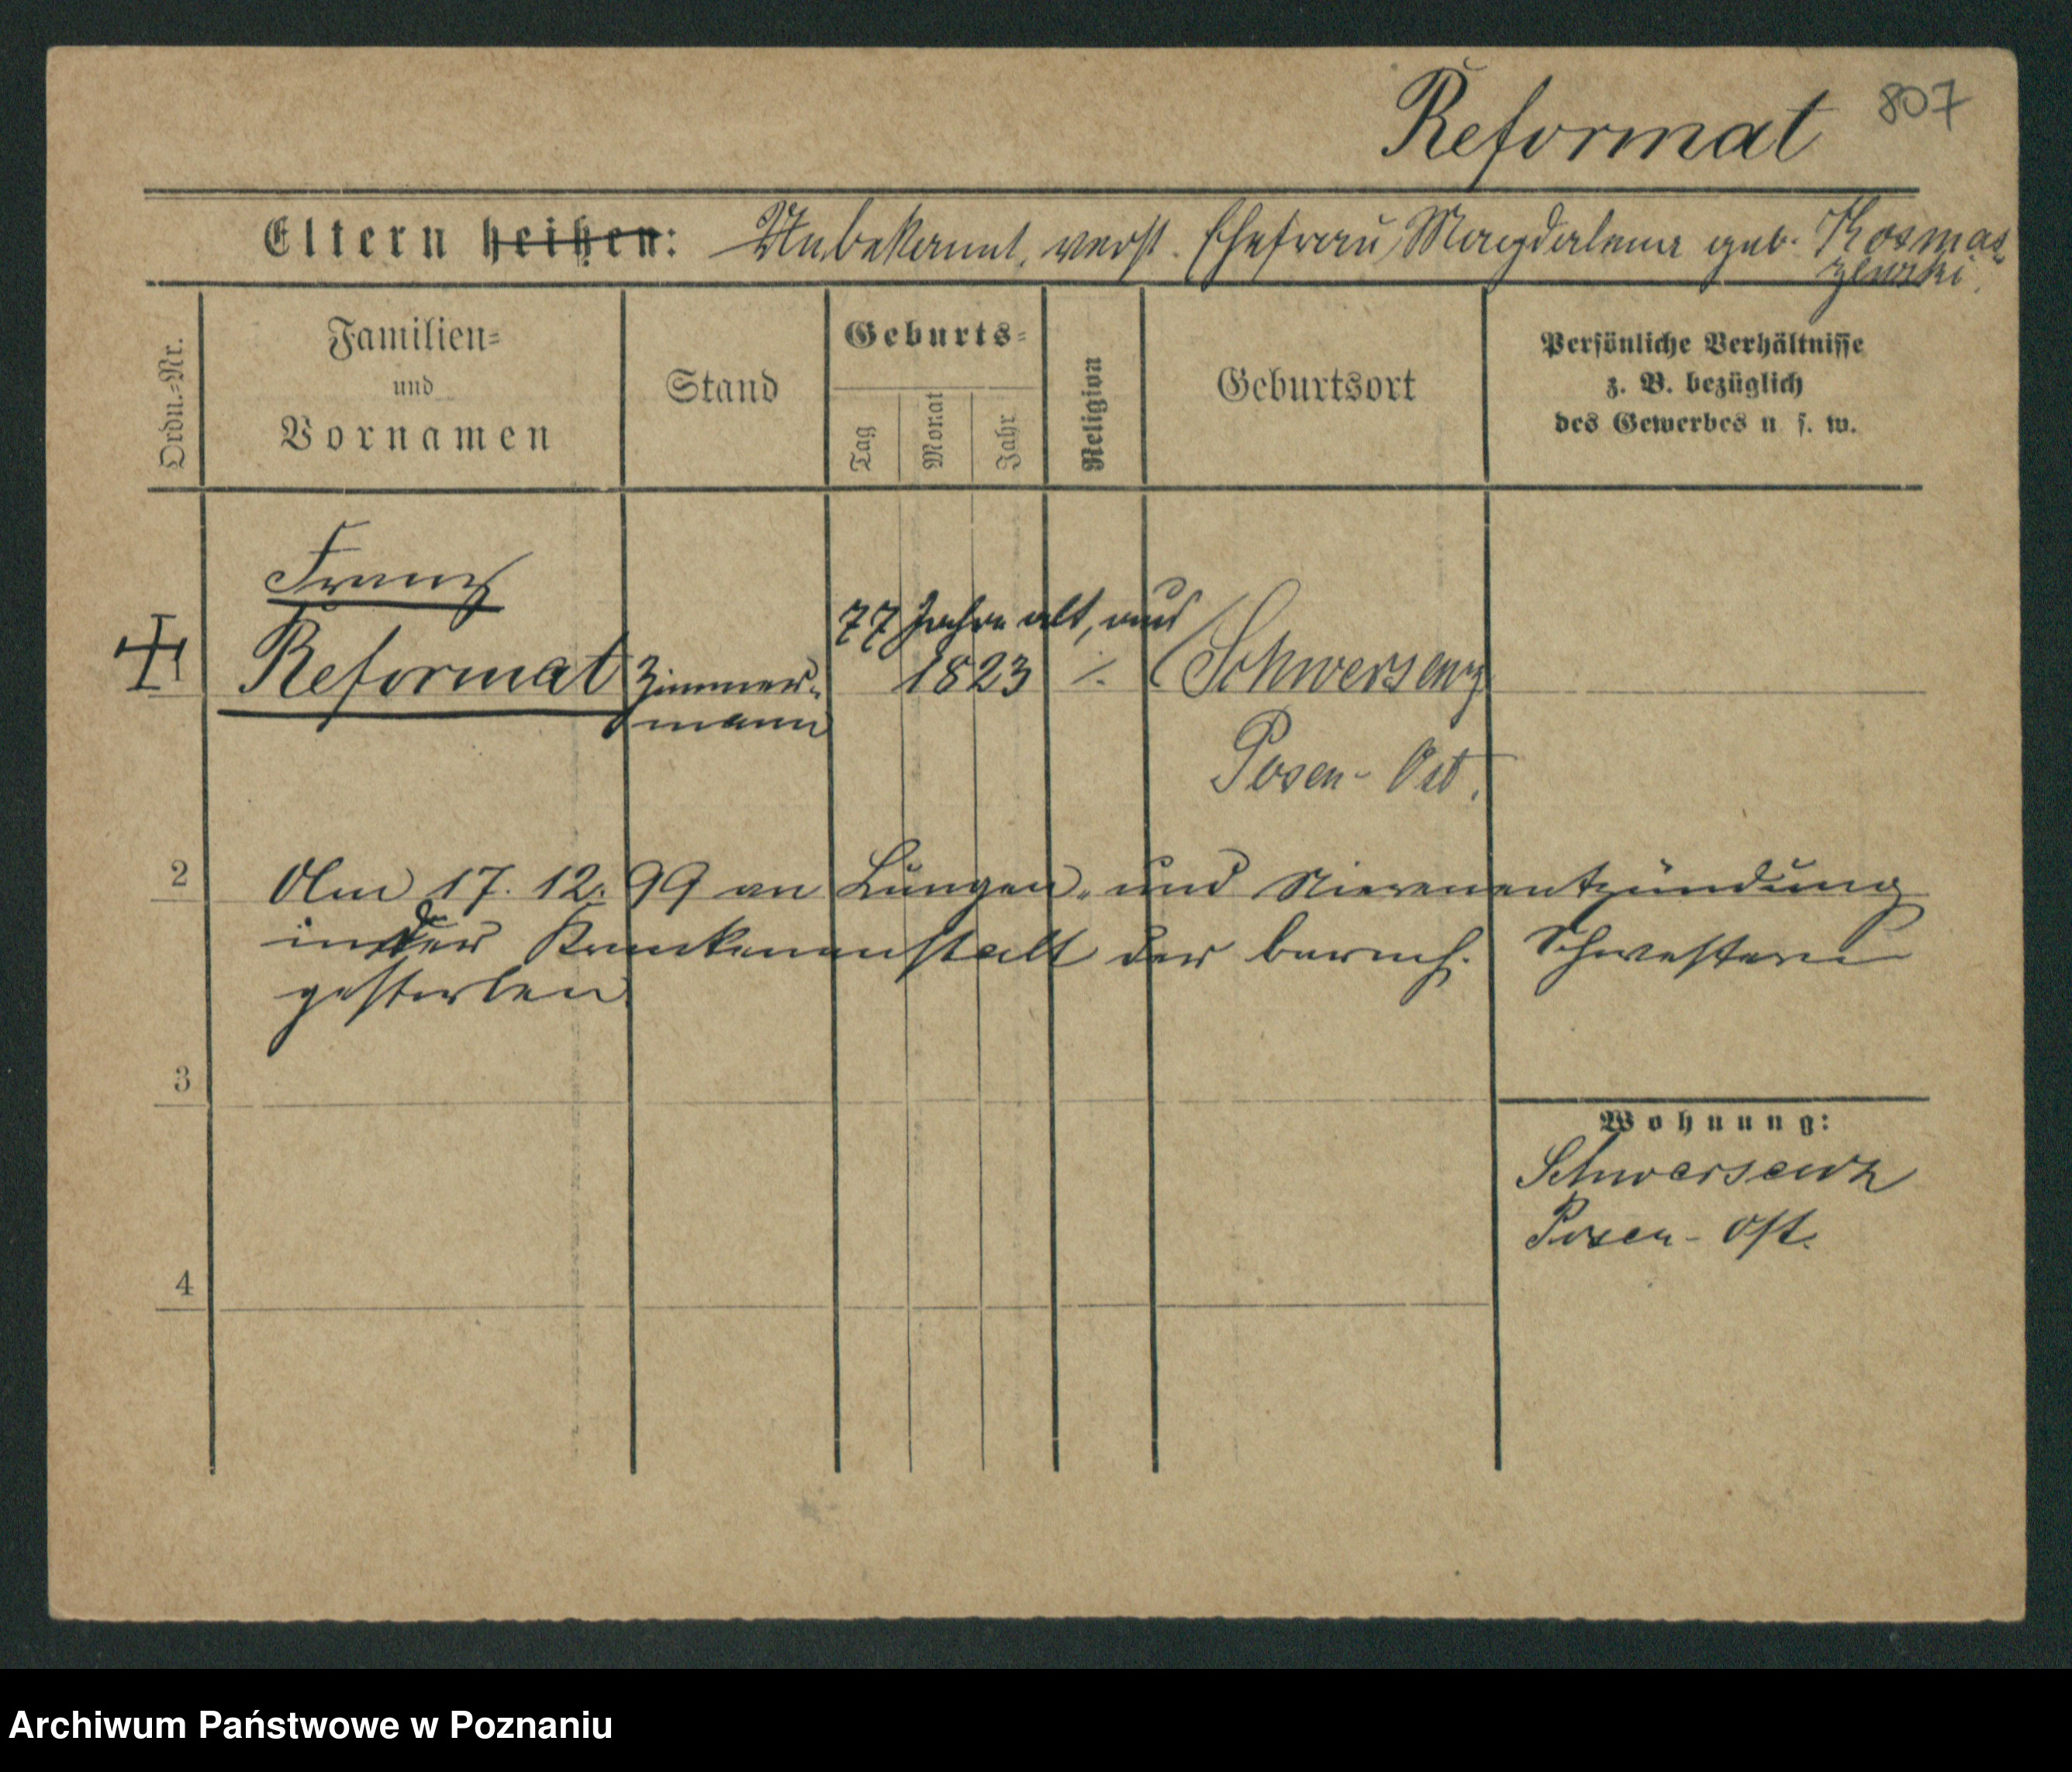 Reformat 807
Eltern heißen: Unbekannt, verst. Ehefrau Magdalena geb. Kosmas
zewski.
Ordn.-Nr.
Familien-
und
Vornamen
Stand
Geburts-
Tag
Monat
Jahr
Religion
Geburtsort
Persönliche Verhältnisse
z. B. bezüglich
des Gewerbes u. s. w.
Franz
77 Jahre alt, aus
Reformat Zimmer- 1823 ⁒ Schwersenz
mann
Posen-Ost.
2 Am 17. 12. 99 an Lungen- und Nierenentzündung
in der Krankenanstalt der barmh. Schwestern
gestorben
3
Wohnung:
Schwersenz
Posen-Ost.
4
Archiwum Państwowe w Poznaniu